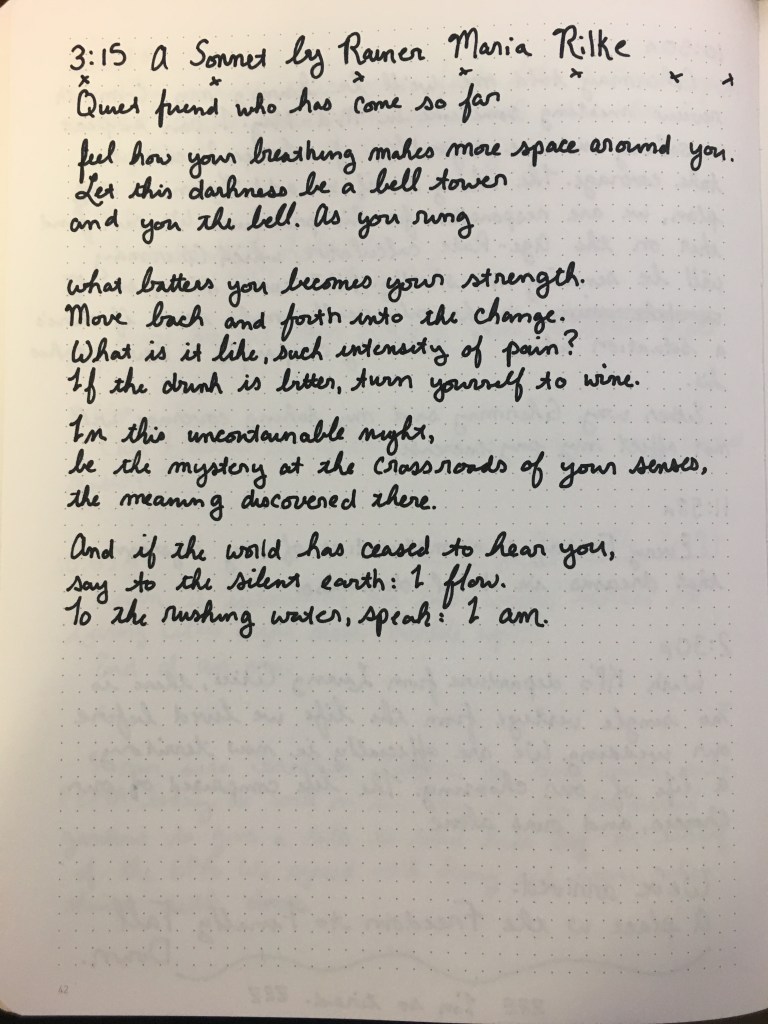 3:15 A Sonnet by Rainer Maria Rilke
x x x x x x x
Quiet friend who has come so far
feel how your breathing makes more space around you.
Let this darkness be a bell tower
and you the bell. As you ring
what batters you becomes your strength.
Move back and forth into the change.
What is it like, such intensity of pain?
If the drink is bitter, turn yourself to wine.
In this uncontainable night,
be the mystery at the crossroads of your senses,
the meaning discovered there.
And if the world has ceased to hear you,
say to the silent earth: I flow.
To the rushing water, speak: I am.
62